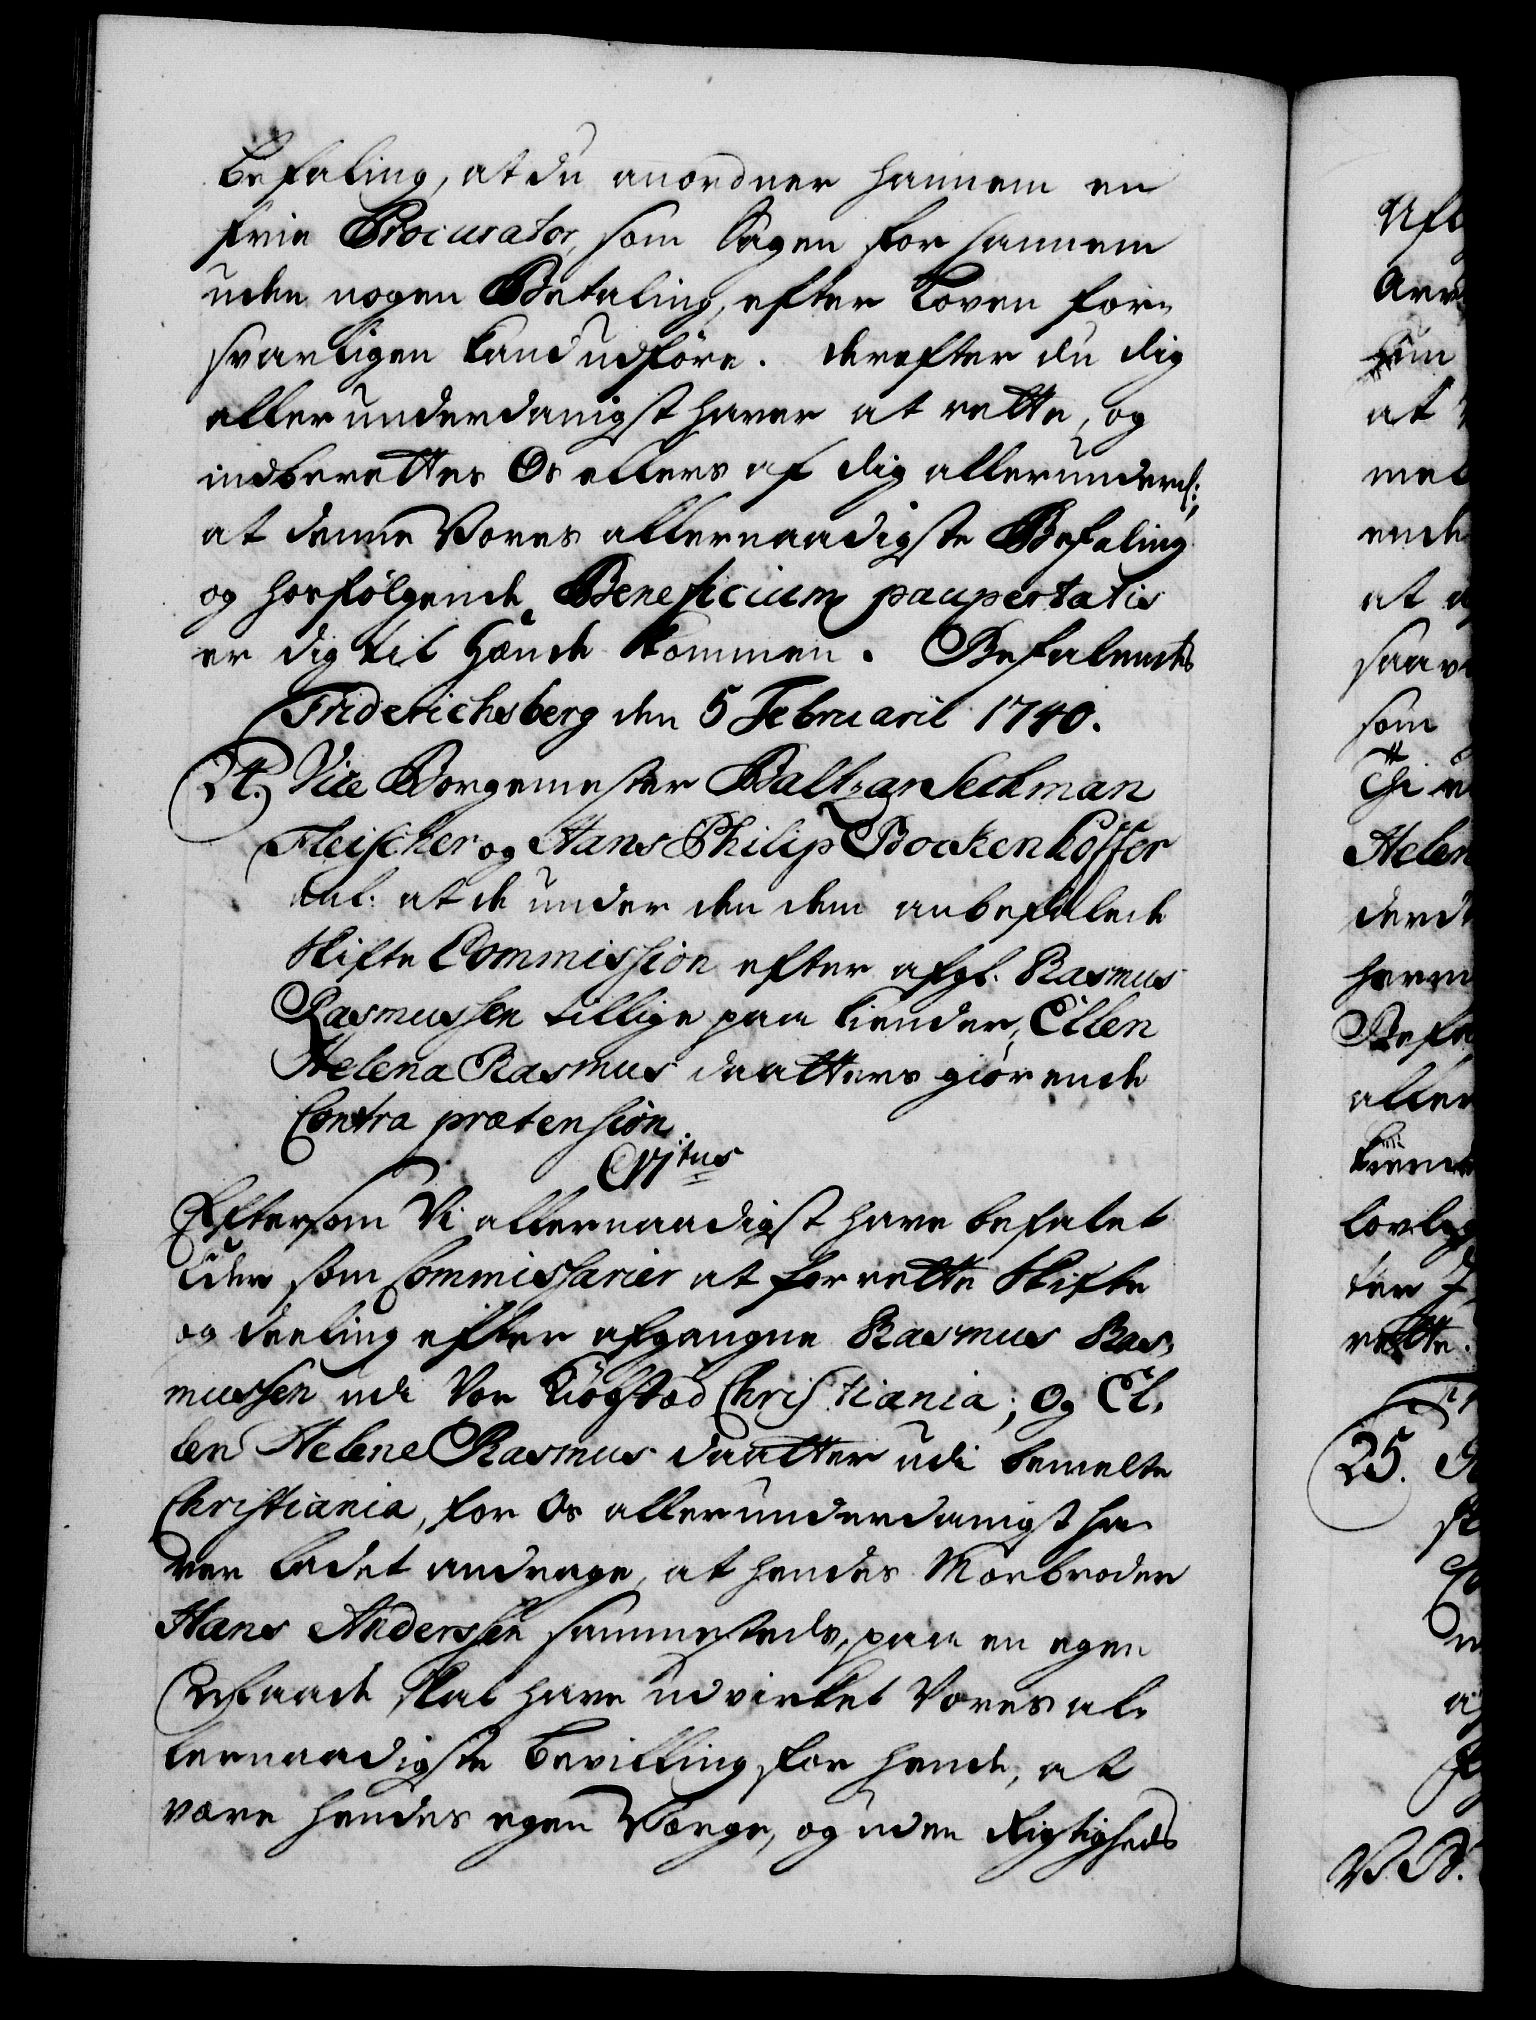 Befaling, at du anordner hannem en
frie Procurator, som Sagen for hannem
uden nogen Betaling, efter Loven for-
svarligen kand udføre. derefter du dig
allerunderdanigst haver at rette, og
indberettes Os ellers af dig allerunderd:
at denne Vores allernaadigste Befaling
og hosfølgende Beneficium paupertatis
er dig til Hænde kommen. Befalendes
Friderichsberg den 5 Februarii 1740.
24. Vice Borgemester Baltzar Seckman
Fleischer og Hans Philip Bockenhoffer
anl: at de under den dem anbefalede
Skifte Commission efter afgl. Rasmus
Rasmussen tillige paa kiender, Ellen
Helena Rasmus daatters giørende
Contra prætension.
C VItus
Eftersom Vi allernaadigst have befalet
Eder som Commissarier at forrette Skifte
og deeling efter afgangne Rasmus Ras-
mussen udi Vor Kiøbstæd Christiania; Og El-
len Helene Rasmus daatter udi bemelte
Christiania, for Os allerunderdanigst ha-
ver ladet andrage, at hendes Morbroder
Hans Anderssen sammesteds, paa en egen
Maade skal have udvirket Vores al-
lernaadigste Bevilling for hende, at
være hendes egen Værge, og uden Rigtigheds
Aft
som
at
med
ende
at
som
Thi
Helen
allen
lovlig
der
rette.
25.